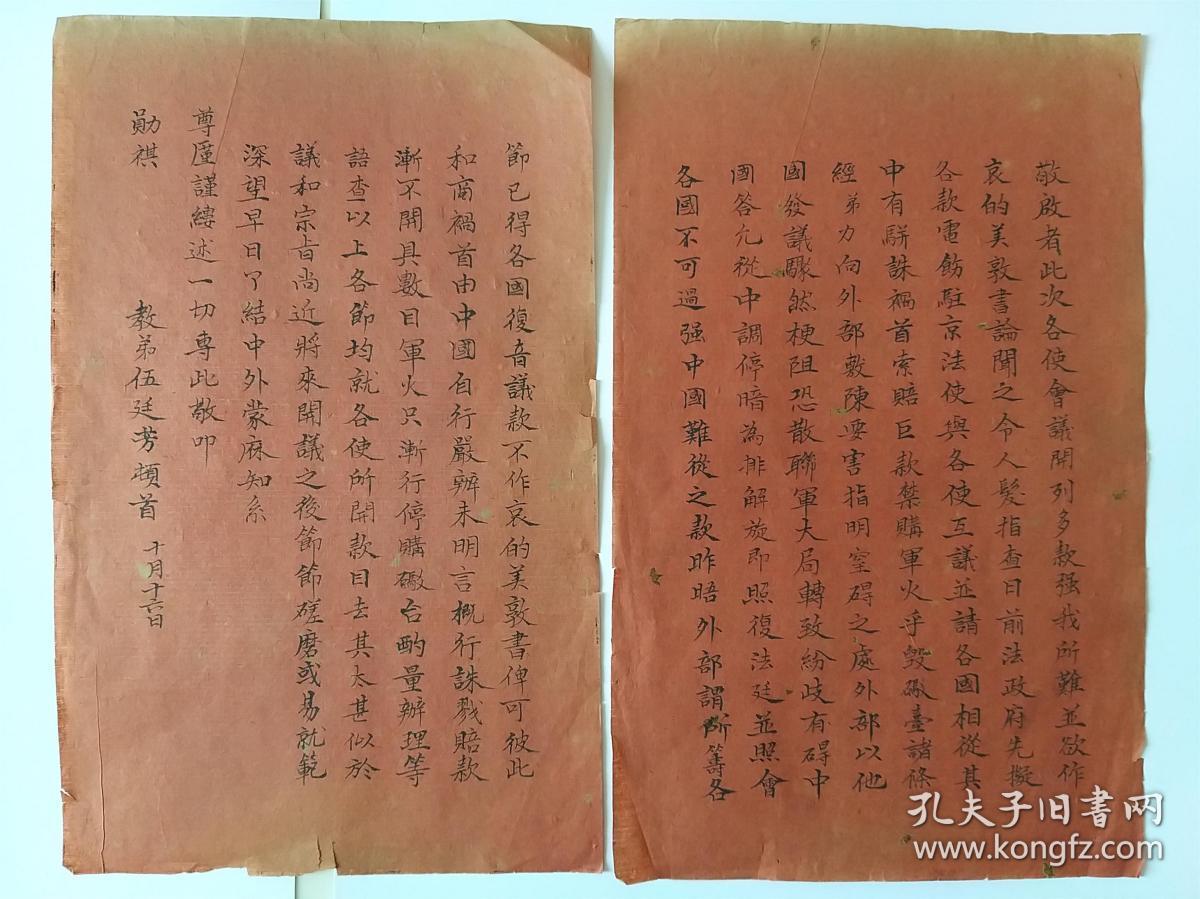 敬啟者此次各使會議開列多款强我所難並欲作
哀的美敦書論聞之令人髮指查日前法政府先擬
各款電飭駐京法使與各使互議並請各國相從其
中有駢誅禍首索賠巨款禁購軍火乎毀礮臺諸條
經弟力向外部敷陳要害指明窒碍之處外部以他
國發議驟然梗阻恐散聯軍大局轉致紛歧有碍中
國答允從中調停暗為排解旋即照復法廷並照會
各國不可過强中國難從之款昨晤外部謂所籌各
節已得各國復音議款不作哀的美敦書俾可彼此
和商禍首由中國自行嚴辦未明言概行誅戮賠款
漸不開具數目軍火只漸行停購礮台酌量辦理等
語查以上各節均就各使所開款目去其太甚似於
議和宗旨尚近將來開議之後節節磋磨或易就範
深望早日了結中外蒙庥知系
尊廑謹縷述一切專此敬叩
勛祺
教弟伍廷芳頓首 十月十六日
孔夫子旧书网
www.kongfz.com